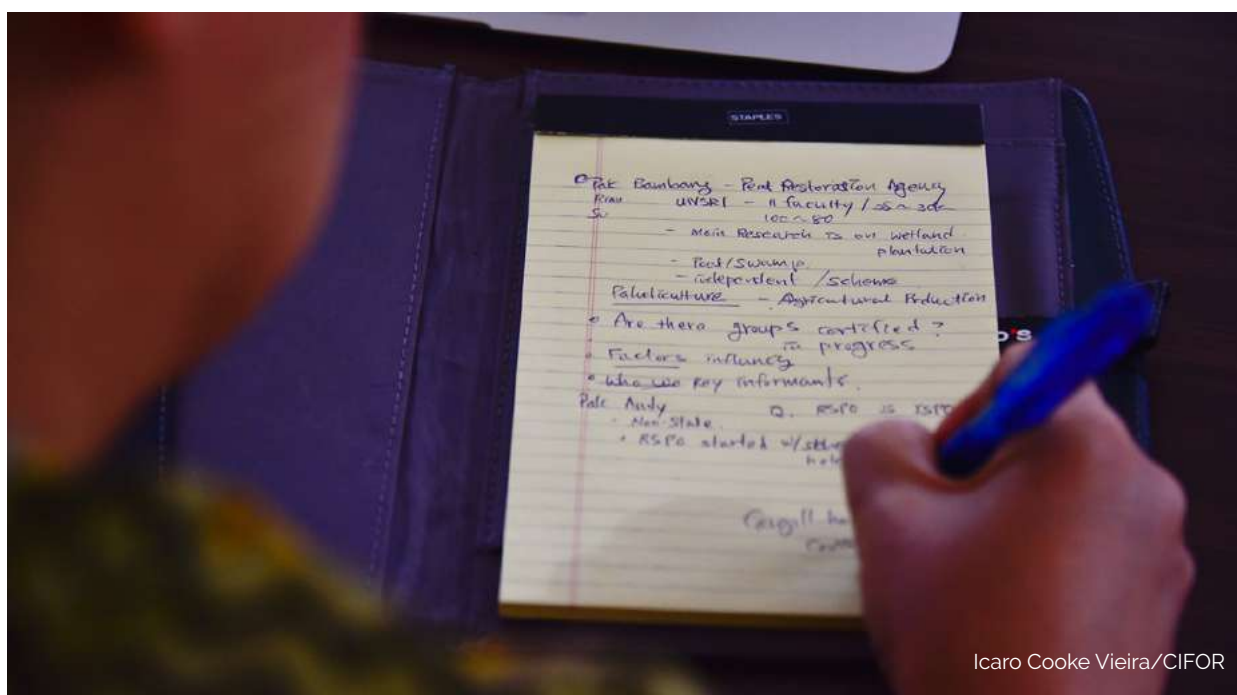 STAPLES
Pak Bambang - Peat Restoration Agency
Riau UNSRI - 11 faculty /
100 ~ 80
- Main Research is on wetland
plantation
- Peat/Swamp
- independent /scheme
Paludiculture - Agricultural Production
• Are there groups certified ?
in progress
• Factors influncg
• Who are key informants.
Pak Andy Q. RSPO IS ISPO
· Non-State.
• RSPO started w/
Cargill
Icaro Cooke Vieira/CIFOR